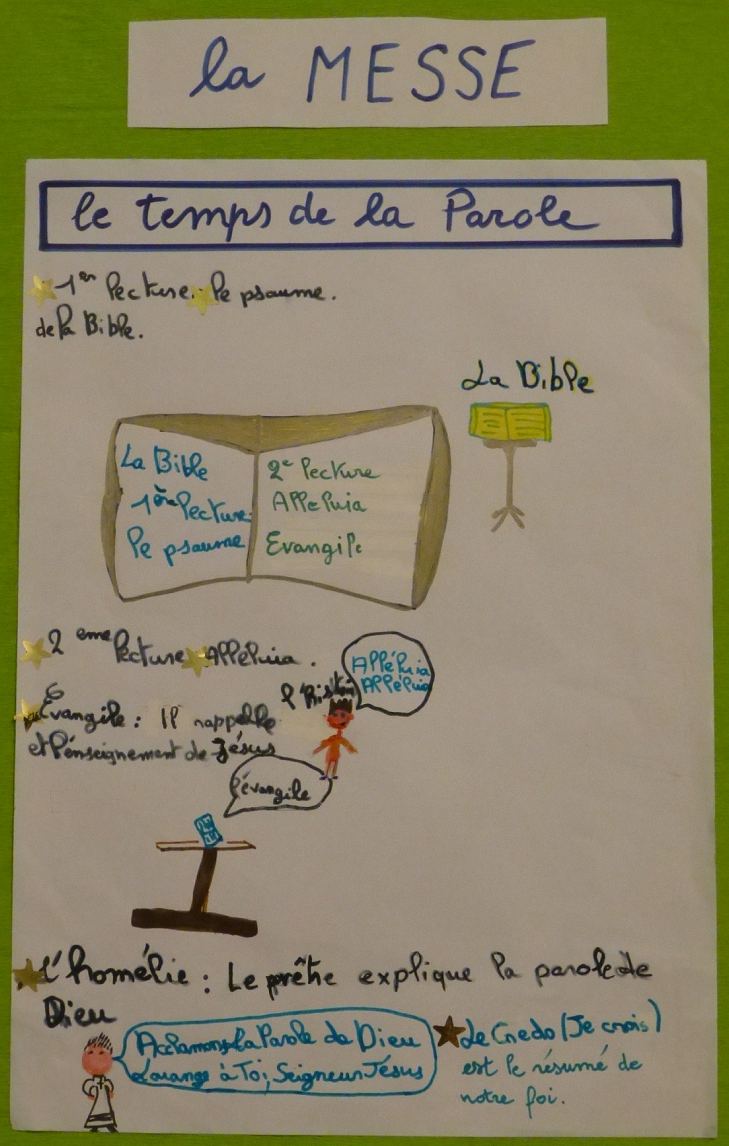 la MESSE
le temps de la Parole
1er lecture. le psaume.
de la Bible.
La Bible
La Bible
1ère lecture
le psaume
2e lecture
Alleluia
Evangile
2 eme lecture Alléluia.
Alléluia
Alléluia
Évangile : Il rappelle
et l'énseignement de Jésus
l'évangile
l'homélie : Le prêtre explique la parole de
Dieu
Acclamons la Parole de Dieu
Louange à Toi, Seigneur Jésus
Le Credo (Je crois)
est le résumé de
notre foi.